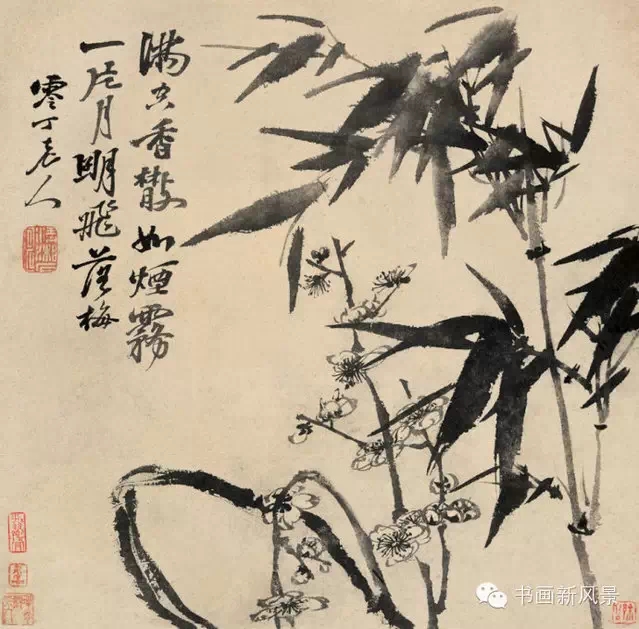 滿空香散如煙霧
一片月明飛落梅
零丁老人
书画新风景